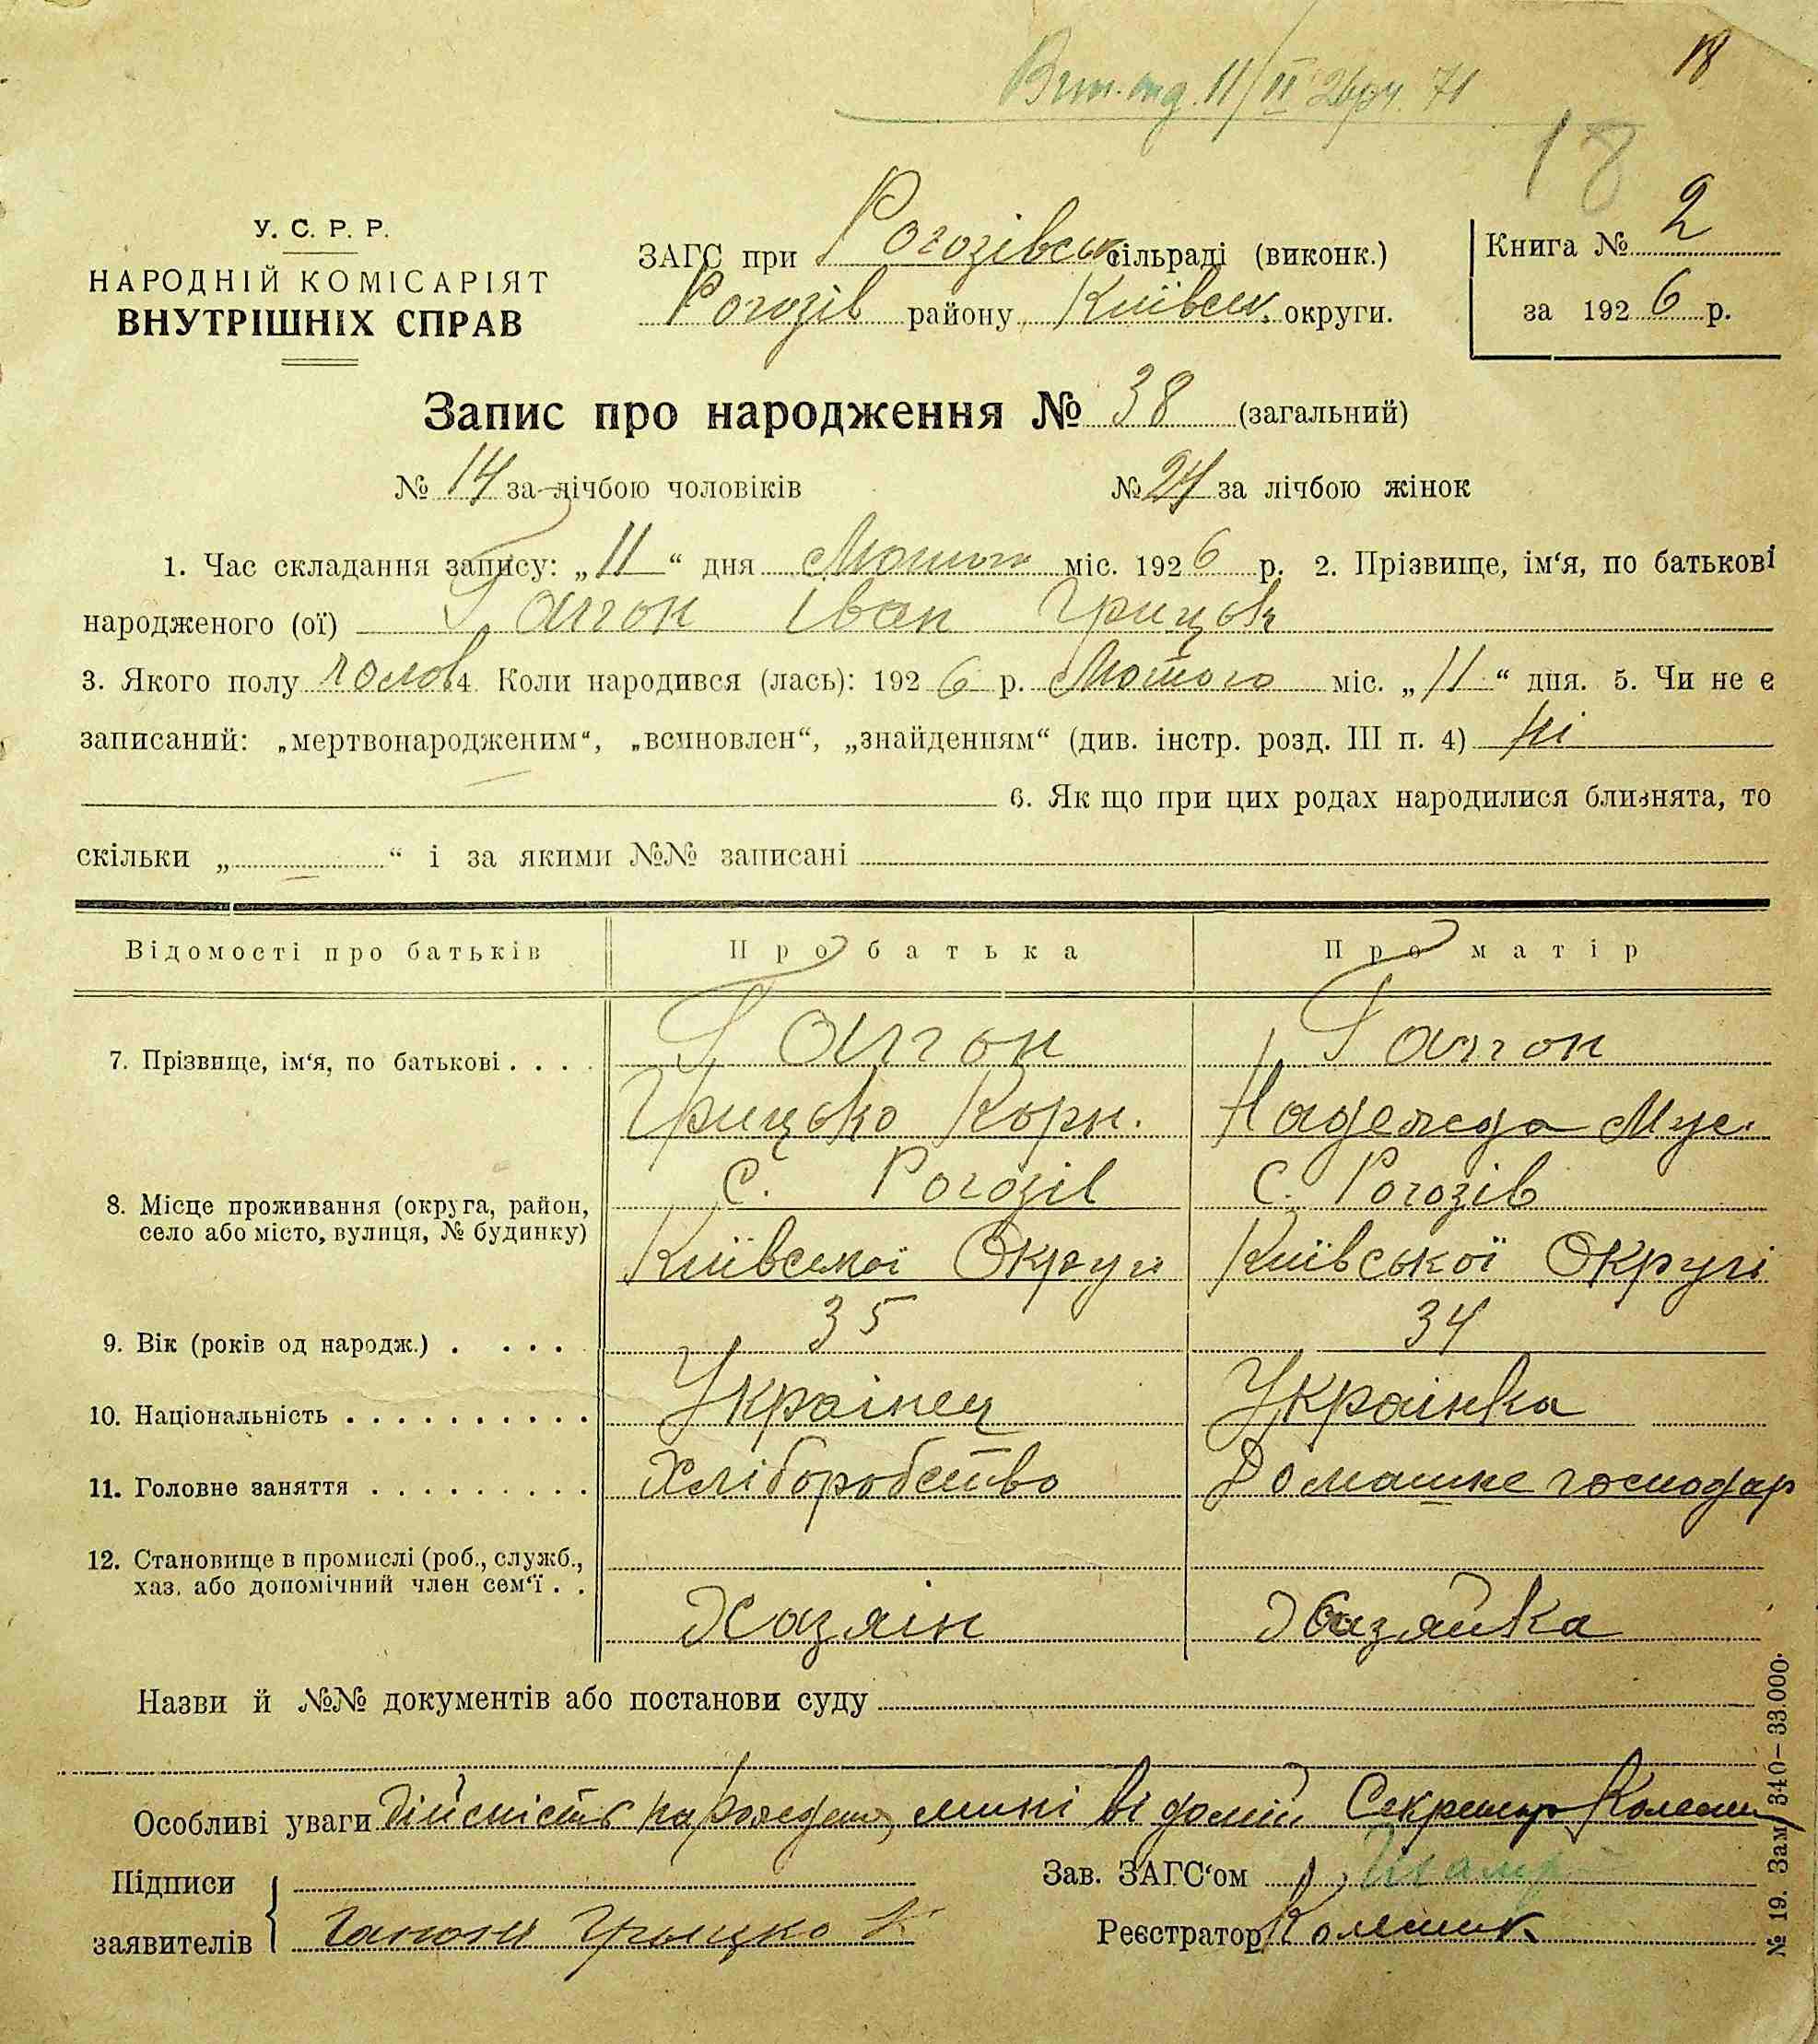 18
Вип. від. 11/II 26р. 71
18
У. С. Р. Р.
НАРОДНІЙ КОМІСАРІЯТ
ВНУТРІШНІХ СПРАВ
ЗАГС при Рогозівськ сільраді (виконк.)
Рогозів району Київськ. округи.
Книга № 2
за 1926 р.
Запис про народження № 38 (загальний)
№ 14 за лічбою чоловіків № 24 за лічбою жінок
1. Час складання запису: „11“ дня Лютого міс. 1926 р. 2. Прізвище, ім‘я, по батькові
народженого (ої) Гапон Іван Грицьк
3. Якого полу чолов 4. Коли народився (лась): 1926 р. Лютого міс. „11“ дня. 5. Чи не є
записаний: „мертвонародженим“, „всиновлен“, „знайденням“ (див. інстр. розд. III п. 4) Ні
6. Як що при цих родах народилися близнята, то
скільки „ “ і за якими №№ записані
Відомості про батьків Про батька Про матір
7. Прізвище, ім‘я, по батькові . . . . Гапон Гапон
Грицько Корн. Надежда Мус.
8. Місце проживання (округа, район, село або місто, вулиця, № будинку) с. Рогозів с. Рогозів
Київської Округи Київської Округі
9. Вік (років од народж.) . . . . 35 34
10. Національність . . . . . . . . . . Украінец Украінка
11. Головне заняття . . . . . . . . . Хліборобство Домашнє господар
12. Становище в промислі (роб., служб.,
хаз. або допомічний член сем‘ї . . Хазяін Хазяйка
Назви й №№ документів або постанови суду
Особливі уваги Дійсність народження мині відомій Секретар Колесник
Підписи Зав. ЗАГС‘ом
заявителів Гапон Грицко К Реєстратор Колесник
№ 19. Зам. 340—33.000.